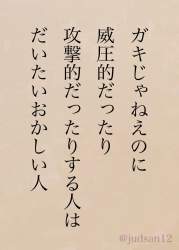 ガキじゃねえのに
威圧的だったり
攻撃的だったりする人は
だいたいおかしい人
@judsan12